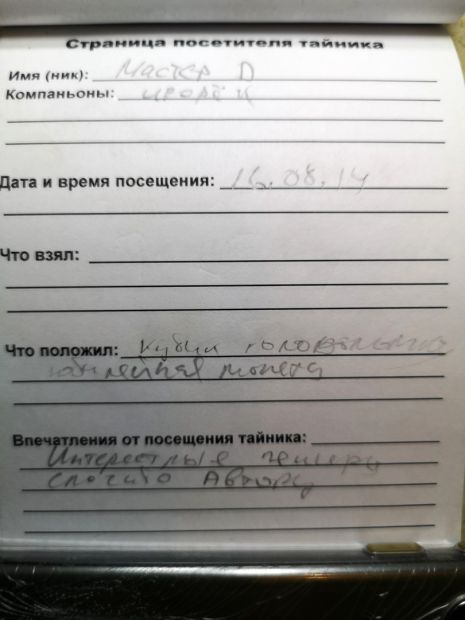 Страница посетителя тайника
Имя (ник): Мастер D
Компаньоны:
Дата и время посещения: 16.08.14
Что взял:
Что положил: кубик головоломка
юбилейная монета
Впечатления от посещения тайника:
Интересные
спасибо Автору